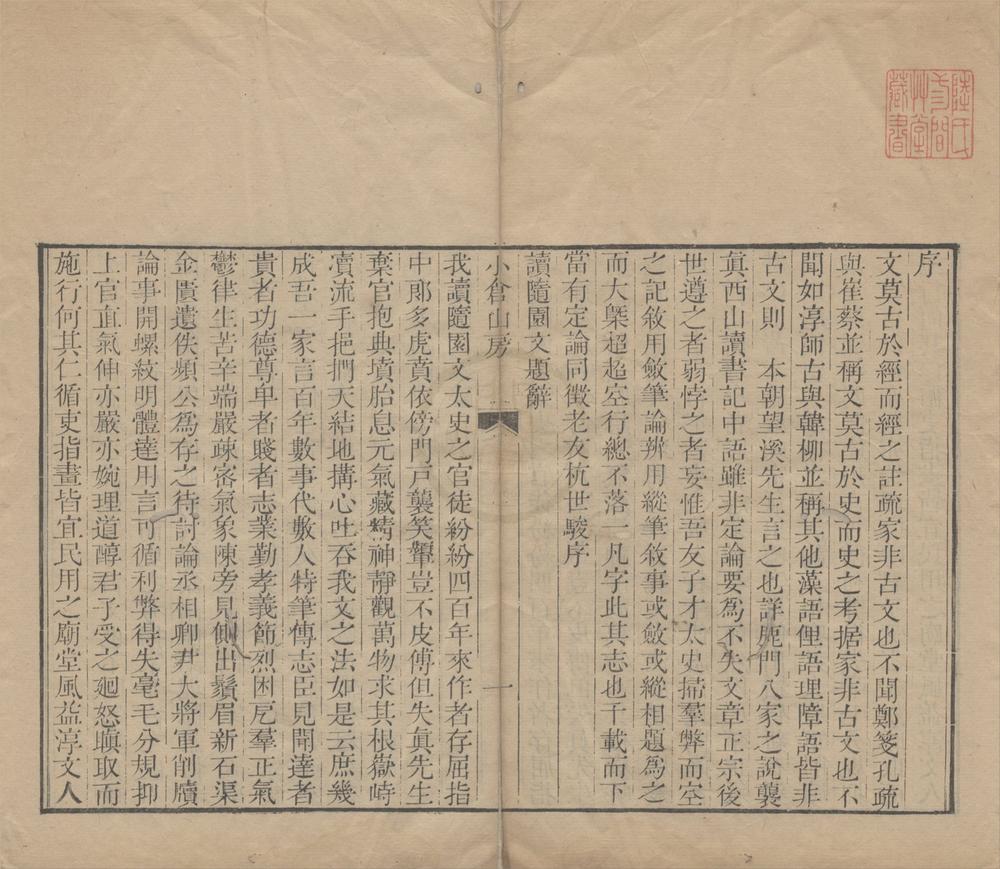 序
文莫古於經而經之註疏家非古文也不聞鄭箋孔疏
與崔蔡並稱文莫古於史而史之考据家非古文也不
聞如淳師古與韓柳並稱其他藻語俚語理障語皆非
古文則　本朝望溪先生言之也詳鹿門八家之說襲
眞西山讀書記中語雖非定論要爲不失文章正宗後
世遵之者弱悖之者妄惟吾友子才太史掃羣弊而空
之記敘用斂筆論辨用縱筆敘事或斂或縱相題爲之
而大槩超超空行總不落一凡字此其志也千載而下
當有定論同徵老友杭世駿序
讀隨園文題辭
小倉山房
一
我讀隨園文太史之官徒紛紛四百年來作者存屈指
中郎多虎賁依傍門戸襲笑顰豈不皮傅但失眞先生
棄官抱典墳胎息元氣藏精神靜觀萬物求其根嶽峙
瀆流手挹捫天結地搆心吐吞我文之法如是云庶幾
成吾一家言百年數事代數人特筆傳志臣見聞達者
貴者功德尊卑者賤者志業勤孝義節烈困厄羣正氣
鬱律生苦辛端嚴疎密氣象陳旁見側出鬚眉新石渠
金匱遺佚頻公爲存之待討論丞相卿尹大將軍削牘
論事開螺紋明體達用言可循利弊得失毫毛分規抑
上官直氣伸亦嚴亦婉理道醇君子受之廻怒嗔取而
施行何其仁循吏指畫皆宜民用之廟堂風益淳文人
陸氏
三間
艸堂
藏書